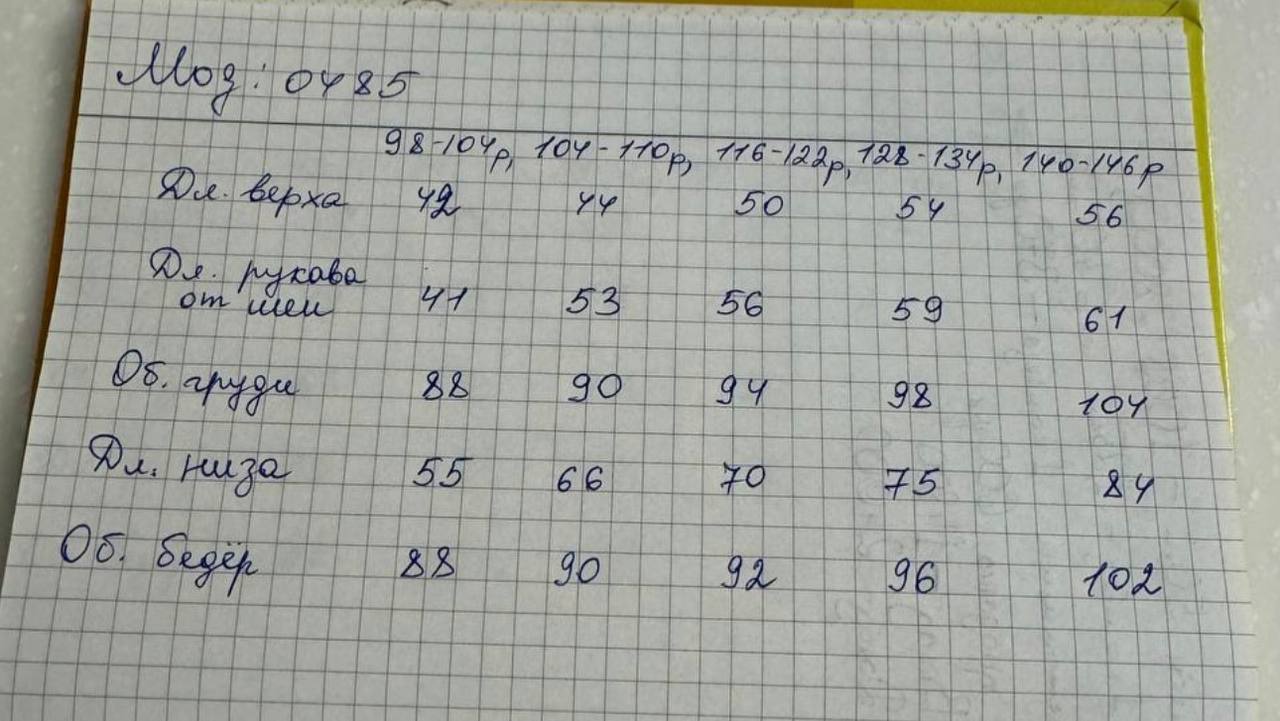 Мод: 0485
98-104р, 104-110р, 116-122р, 128-134р, 140-146р
Дл. верха 42 44 50 54 56
Дл. рукава
от шеи 41 53 56 59 61
Об. груди 88 90 94 98 104
Дл. низа 55 66 70 75 84
Об. бедёр 88 90 92 96 102